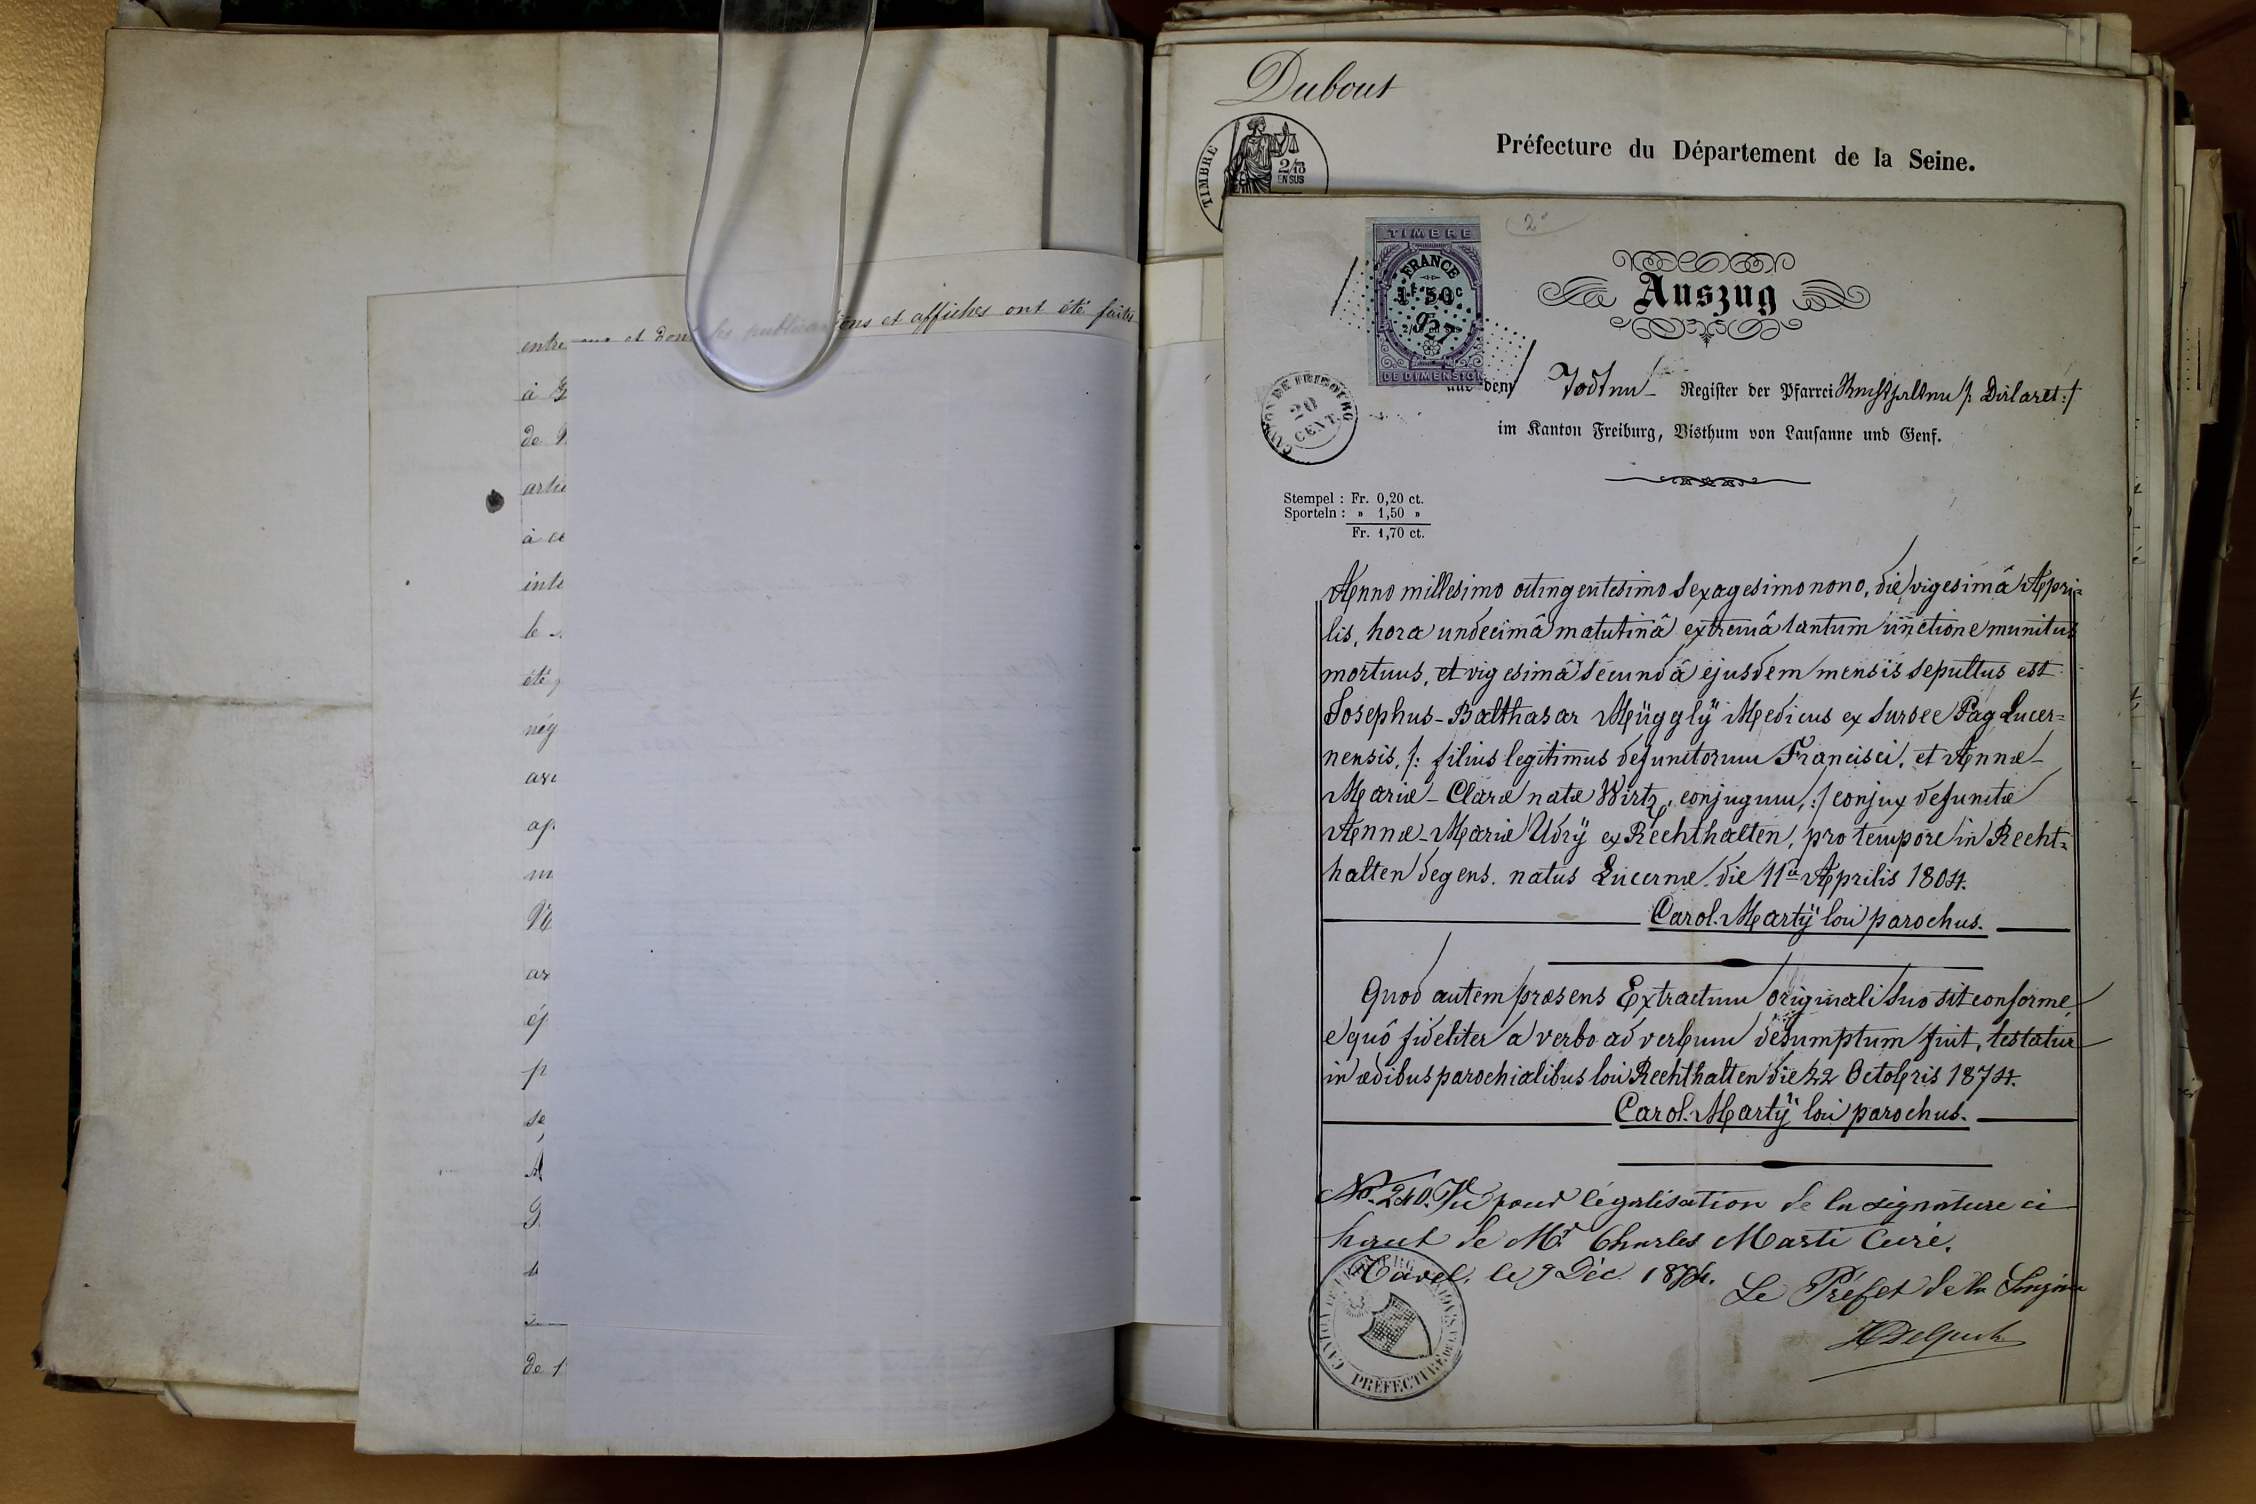 entre et dont les publications et affiches ont été faites
à
de
à
le
été
de
Dubout
TIMBRE
2/10
EN SUS
Préfecture du Département de la Seine.
2°
TIMBRE
FRANCE
1F 50c
DE DIMENSION
Auszug
aus dem Todten- Register der Pfarrei Rechthalten /: Dirlaret :/
im Kanton Freiburg, Bisthum von Lausanne und Genf.
CANTON DE FRIBOURG
20
CENT.
Stempel : Fr. 0,20 ct.
Sporteln : » 1,50 »
Fr. 1,70 ct.
Anno millesimo octingentesimo sexagesimo nono, die vigesimâ Apri-
lis, hora undecimâ matutinâ extremâ tantum unctione munitus
mortuus, et vigesimâ secundâ ejusdem mensis sepultus est
Josephus-Balthasar Müggly Medicus ex Sursee Pag Lucer=
nensis, /: filius legitimus defunctorum Francisci, et Annæ-
Mariæ-Claræ natæ Wirtz, conjugum, :/ conjux defunctæ
Annæ-Mariæ Udrÿ ex Rechthalten, pro tempore in Recht=
halten degens. natus Lucernæ die 11a Aprilis 1804.
Carol. Martÿ loci parochus.
Quod autem præsens Extractum originali suo sit conforme,
e quô fideliter a verbo ad verbum desumptum fuit, testatur
in ædibus parochialibus loci Rechthalten die 22 Octobris 1874.
Carol. Martÿ loci parochus.
No. 240. Vu pour légalisation de la signature ci
haut de Mr Charles Marti Curé.
Tavel, le 9 Déc. 1874.
Le Préfet de la Singine
CANTON DE FRIBOURG
PRÉFECTURE